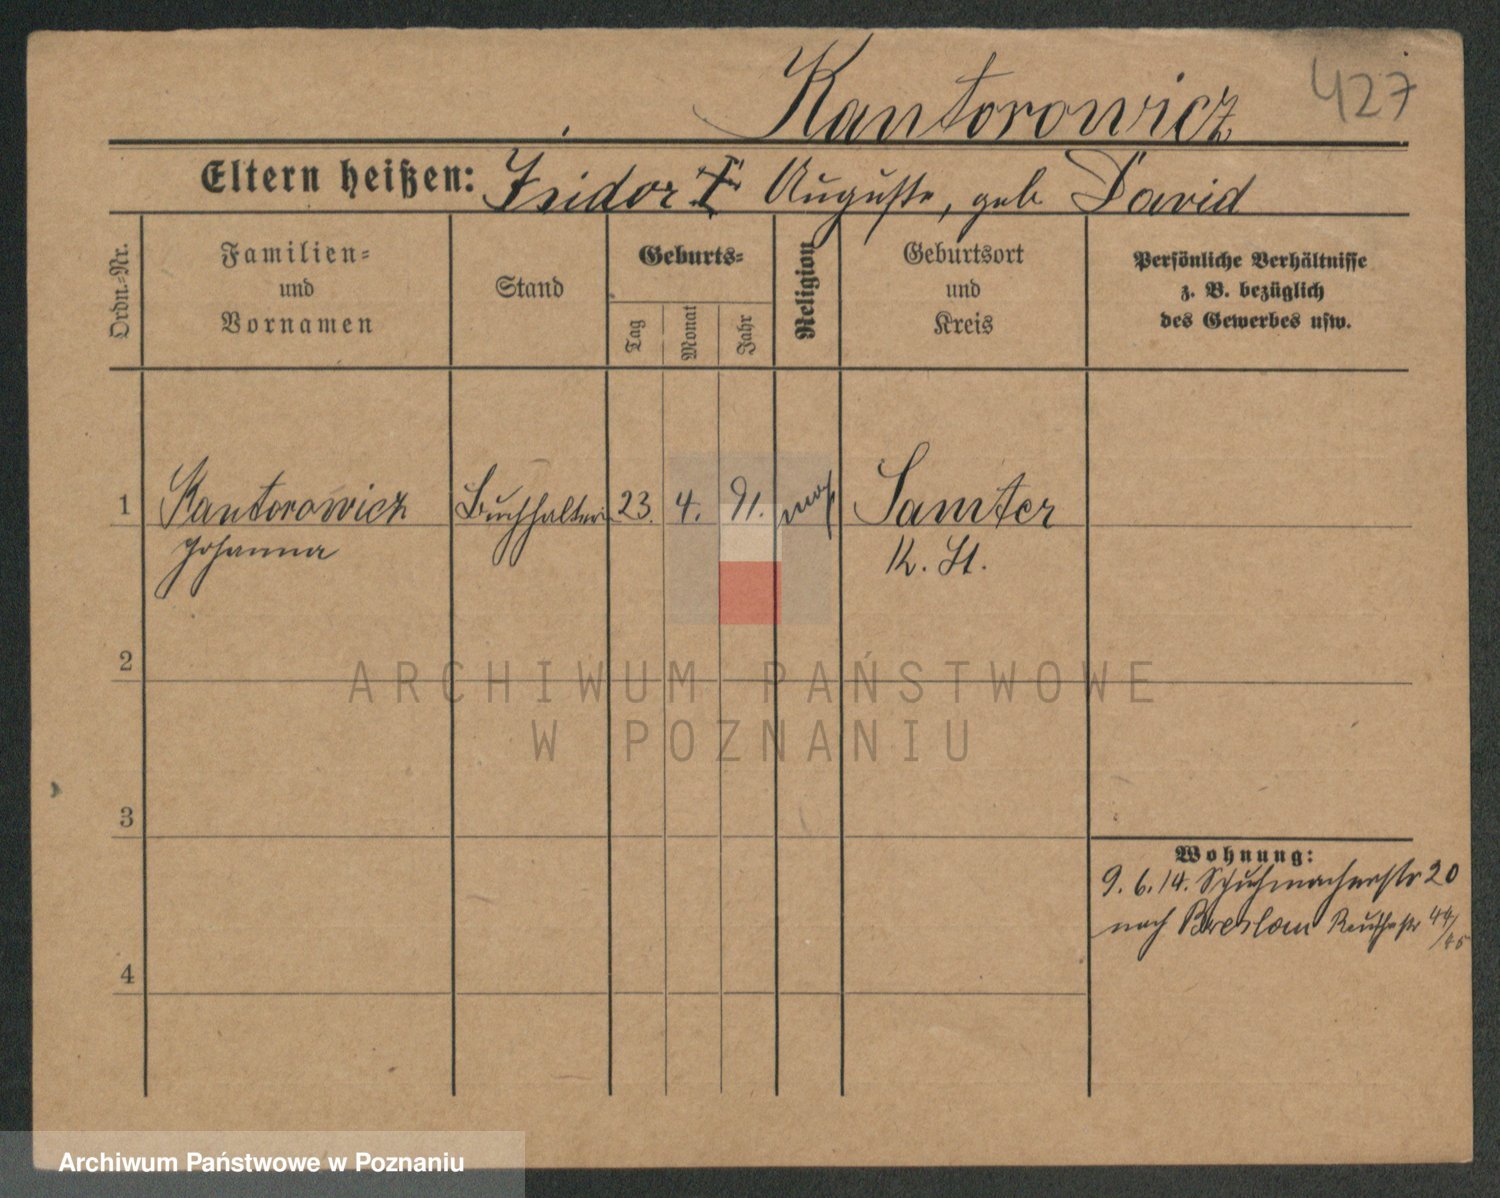 Kantorowicz 427
Eltern heißen: Isidor Auguste, geb David
Ordn.-Nr.
Familien=
und
Vornamen
Stand
Geburts=
Tag
Monat
Jahr
Religion
Geburtsort
und
Kreis
Persönliche Verhältnisse
z. B. bezüglich
des Gewerbes usw.
1 Kantorowicz Buchhalterin 23. 4. 91. mos Samter
Johanna K. St.
2
3
4
Wohnung:
9. 6. 14. Schuhmacherstr 20
nach Breslau Reuschestr 44/45
ARCHIWUM PAŃSTWOWE
W POZNANIU
Archiwum Państwowe w Poznaniu